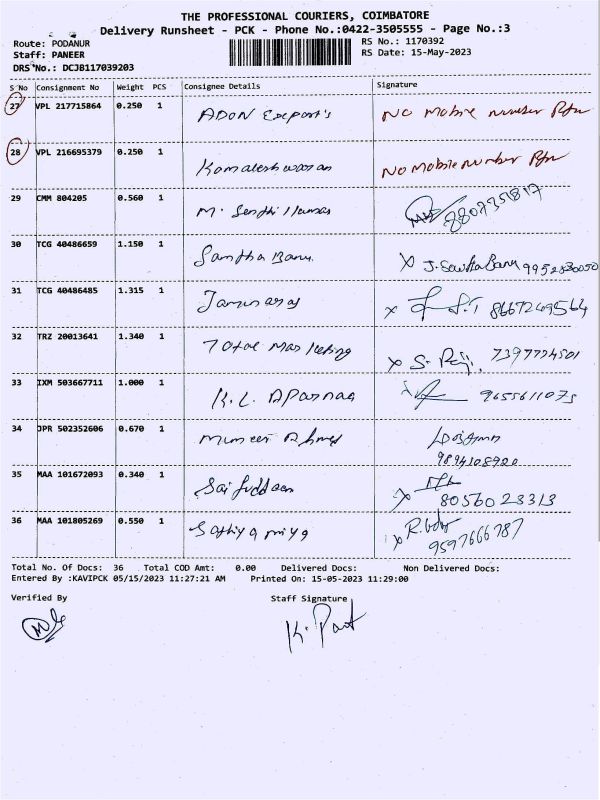 THE PROFESSIONAL COURIERS, COIMBATORE
Delivery Runsheet - PCK - Phone No.:0422-3505555 - Page No.:3
Route: PODANUR RS No.: 1170392
Staff: PANEER RS Date: 15-May-2023
DRS No.: DCJB117039203
S No Consignment No Weight PCS Consignee Details Signature
27 VPL 217715864 0.250 1 ADON Exeport's No Mobile number
28 VPL 216695379 0.250 1 Kamaleshwaran No Mobile number
29 CMM 804205 0.560 1 M. Senthil Kumar
30 TCG 40486659 1.150 1 Santha Banu X J. 9952830050
31 TCG 40486485 1.315 1 x 8667249564
32 TRZ 20013641 1.340 1 Total Marketing x S. 7397774501
33 IXM 503667711 1.000 1 K.L. Aparnaa 9655611075
34 JPR 502352606 0.670 1 Muneer Ahmed
9894108920
35 MAA 101672093 0.340 1 Saifuddeen x
8056023313
36 MAA 101805269 0.550 1 Sathiyapriya x R.
9597666787
Total No. Of Docs: 36 Total COD Amt: 0.00 Delivered Docs: Non Delivered Docs:
Entered By :KAVIPCK 05/15/2023 11:27:21 AM Printed On: 15-05-2023 11:29:00
Verified By Staff Signature
K.